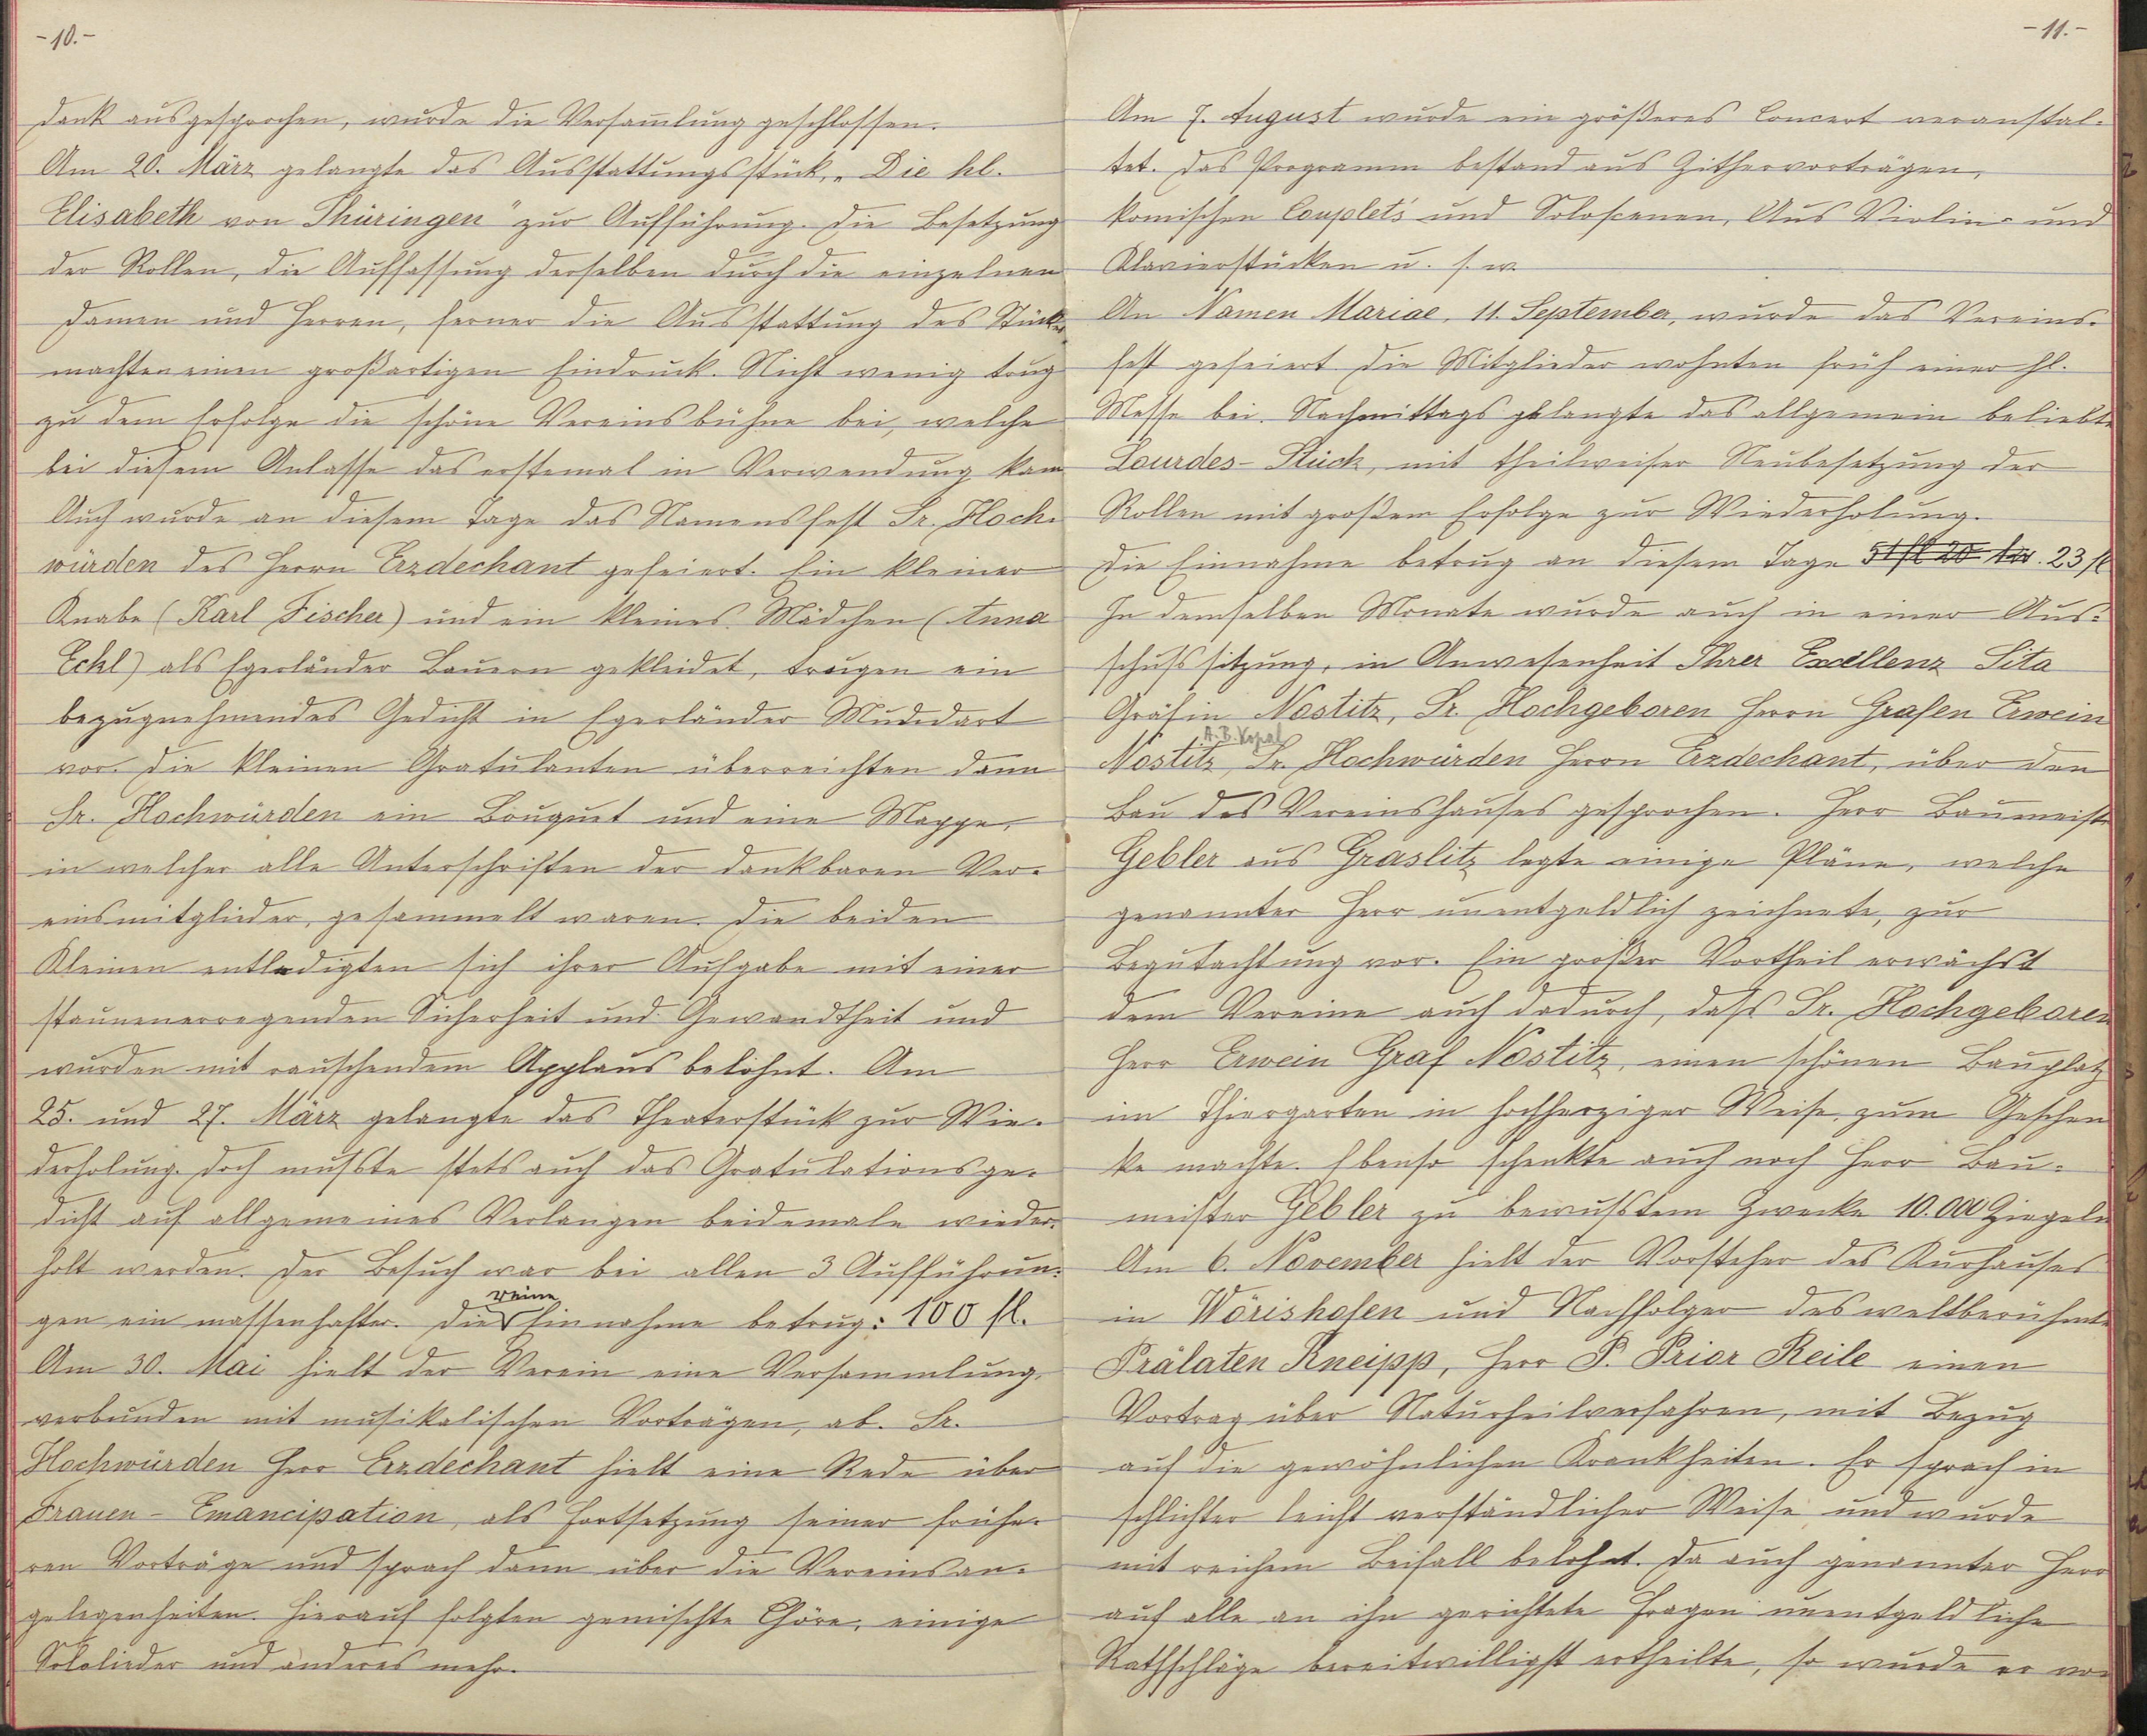 -10.-
Dank ausgesprochen, wurde die Versam̄lung geschlossen.
Am 20. März gelangte das Ausstattungsstück, „Die hl.
Elisabeth von Thüringen" zur Aufführung. Die Besetzung
der Rollen, die Auffassung derselben durch die einzelnen
Damen und Herren, ferner die Ausstattung des Stückes
machten einen großartigen Eindruck. Nicht wenig trug
zu dem Erfolge die schöne Vereinsbühne bei, welche
bei diesem Anlasse das erstemal in Verwendung kam
Auch wurde an diesem Tage das Namensfest Sr. Hoch-
würden des Herrn Erzdechant gefeiert. Ein kleiner
Knabe (Karl Fischer) und ein kleines Mädchen (Anna
Eckl) als Egerländer Bauern gekleidet, trugen ein
bezugnehmendes Gedicht in Egerländer Mundart
vor. Die kleinen Gratulanten überreichten dann
Sr. Hochwürden ein Bouquet und eine Mappe,
in welcher alle Unterschriften der dankbaren Ver-
einsmitglieder, gesammelt waren. Die beiden
Kleinen entledigten sich ihrer Aufgabe mit einer
staunenerregenden Sicherheit und Gewandtheit und
wurden mit rauschendem Applaus belohnt. Am
25. und 27. März gelangte das Theaterstück zur Wie-
derholung. Doch musste stets auch das Gratulationsge-
dicht auf allgemeines Verlangen beidemale wieder-
holt werden. Der Besuch war bei allen 3 Aufführun-
gen ein massenhafter. Die reine Einnahme betrug: 100 fl.
Am 30. Mai hielt der Verein eine Versammlung,
verbunden mit musikalischen Vorträgen, ab. Sr.
Hochwürden Herr Erzdechant hielt eine Rede über
Frauen-Emancipation, als Fortsetzung seiner frühe-
ren Vorträge und sprach dann über die Vereinsan-
gelegenheiten. Hierauf folgten gemischte Chöre, einige
Sololieder und anderes mehr.
-11.-
Am 7. August wurde ein größeres Concert veranstal-
tet. Das Programm bestand aus Zithervorträgen,
komischen Couplet's und Soloscenen, Aus Violin- und
Klavierstücken u. s. w.
An Namen Mariae, 11. September, wurde das Vereins-
fest gefeiert. Die Mitglieder wohnten früh einer hl.
Messe bei. Nachmittags gelangte das allgemein beliebte
Lourdes-Stück, mit theilweiser Neubesetzung der
Rollen mit großem Erfolge zur Wiederholung.
Die Einnahme betrug an diesem Tage 51 fl 20 kr. 23 fl
In demselben Monate wurde auch in einer Aus-
schusssitzung, in Anwesenheit Ihrer Excellenz Sita
Gräfin Nostitz, Sr. Hochgeboren Herrn Grafen Erwein
A. B. Kopal
Nostitz, Sr. Hochwürden Herrn Erzdechant, über den
Bau des Vereinshauses gesprochen. Herr Baumeister
Gebler aus Graslitz legte einige Pläne, welche
genannter Herr unentgeldlich zeichnete, zur
Begutachtung vor. Ein großer Vortheil erwächst
dem Vereine auch dadurch, dass Sr. Hochgeboren
Herr Erwein Graf Nostitz, einen schönen Bauplatz
im Thiergarten in hochherziger Weise, zum Geschen
ke machte. Ebenso schenkte auch noch Herr Bau-
meister Gebler zu bewusstem Zwecke 10.000 Ziegeln
Am 6. November hielt der Vorsteher des Kurhauses
in Wörishofen und Nachfolger des weltberühmten
Prälaten Kneipp, Herr P. Prior Reile einen
Vortrag über Naturheilverfahren, mit Bezug
auf die gewöhnlichen Krankheiten. Er sprach in
schlichter leicht verständlicher Weise und wurde
mit reichem Beifall belohnt. Da auch genannter Herr
auf alle an ihn gerichtete Fragen unentgeldliche
Rathschläge bereitwilligst ertheilte, so wurde er vo